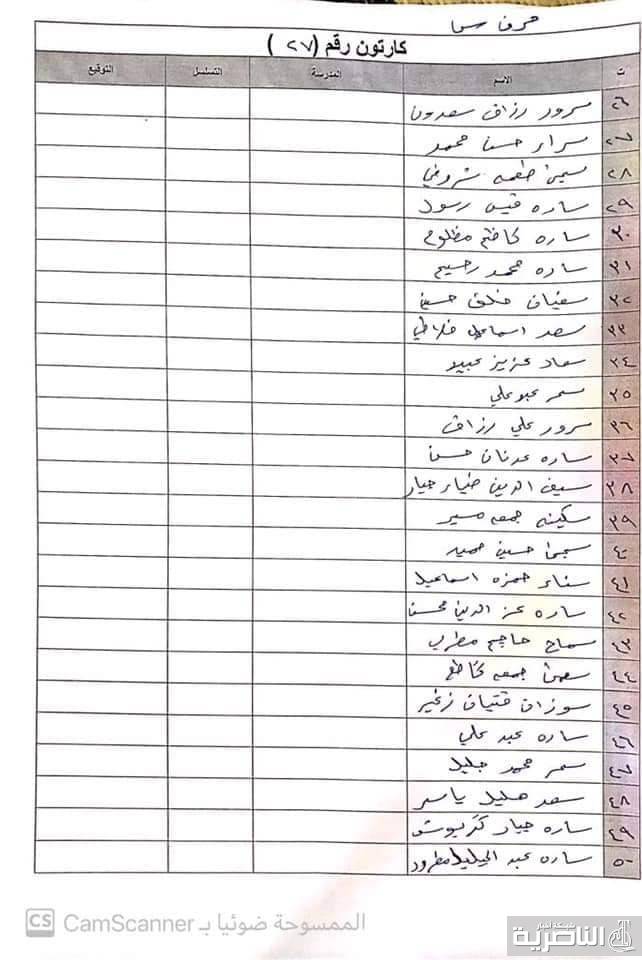 حرف س
كارتون رقم (٢٧)
ت الاسم المدرسة التسلسل التوقيع
٢٦ سرور رزاق سعدون
٢٧ سرار حسن محمد
٢٨ طعمه
٢٩ ساره قيس رسول
٣٠ ساره كاظم مظلوم
٣١ ساره محمد رحيم
٣٢ سفيان حسين
٣٣ سعد اسماعيل
٣٤ سعاد عزيز عبيد
٣٥ سمر عبد علي
٣٦ سرور علي رزاق
٣٧ ساره عدنان حسن
٣٨ سيف الدين ضياء جبار
٣٩ سكينه جمعه مسير
٤٠ سجى حسين حميد
٤١ سناء حمزه اسماعيل
٤٢ ساره عز الدين محسن
٤٣ سماح حاچم
٤٤ جمعه كاطع
٤٥ سوزان زغير
٤٦ ساره عبد علي
٤٧ سمر محمد جليل
٤٨ سعد هليل ياسر
٤٩ ساره جبار
٥٠ ساره عبد الجليل مطرود
CS الممسوحة ضوئيا بـ CamScanner
شبكة اخبار
الناصرية